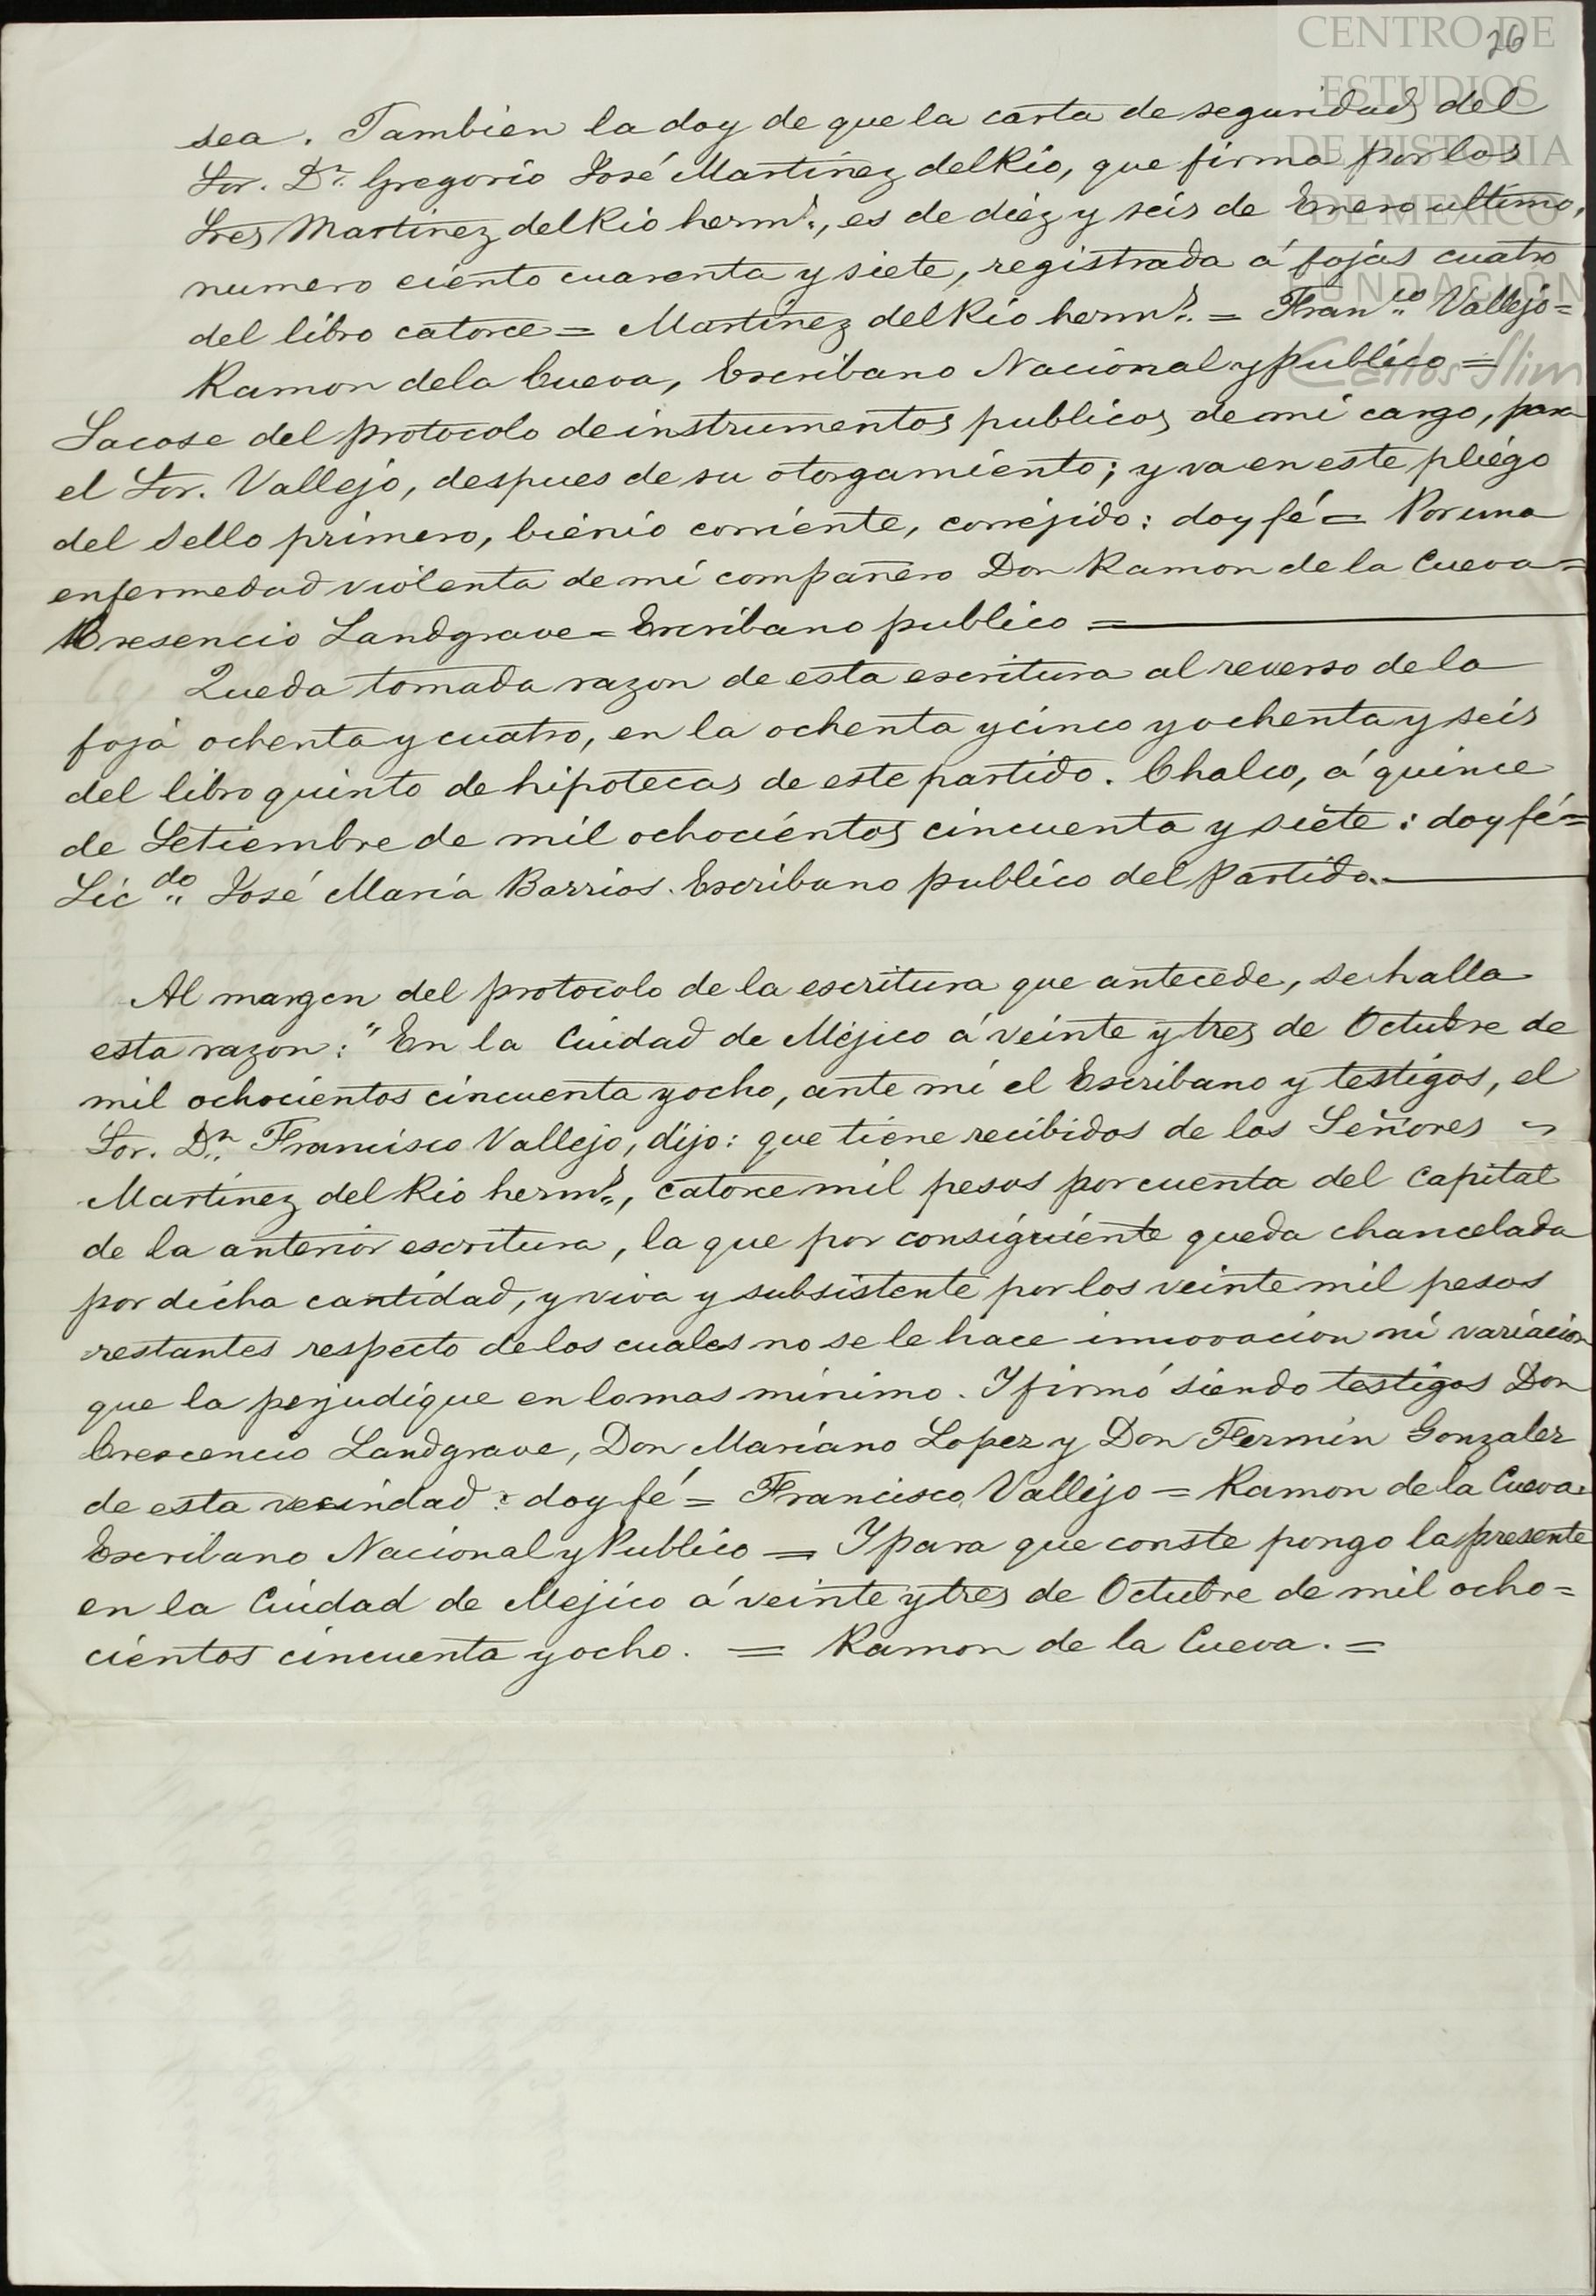 CENTRO DE
ESTUDIOS
DE HISTORIA
DE MEXICO
FUNDACIÓN
Carlos Slim
26
sea. Tambien la doy de que la carta de seguridad del
Sor. Dn. Gregorio José Martinez del Rio, que firma por los
Sres Martinez del Rio herms., es de diez y seis de Enero ultimo,
numero ciento cuarenta y siete, registrada á fojas cuatro
del libro catorce = Martinez del Rio herms. = Franco. Vallejo =
Ramon de la Cueva, Escribano Nacional y publico =
Sacose del protocolo de instrumentos publicos de mi cargo, para
el Sor. Vallejo, despues de su otorgamiento; y va en este pliego
del sello primero, bienio corriente, correjido: doy fé = Por una
enfermedad violenta de mi compañero Don Ramon de la Cueva =
Cresencio Landgrave = Escribano publico =
Queda tomada razon de esta escritura al reverso de la
foja ochenta y cuatro, en la ochenta y cinco y ochenta y seis
del libro quinto de hipotecas de este partido. Chalco, á quince
de Setiembre de mil ochocientos cincuenta y siete: doy fé =
Licdo. José María Barrios. Escribano publico del Partido.
Al margen del protocolo de la escritura que antecede, se halla
esta razon: "En la Cuidad de Mejico á veinte y tres de Octubre de
mil ochocientos cincuenta y ocho, ante mi el Escribano y testigos, el
Sor. Dn. Francisco Vallejo, dijo: que tiene recibidos de los Señores
Martinez del Rio herms., catorce mil pesos por cuenta del Capital
de la anterior escritura, la que por consiguiente queda chancelada
por dicha cantidad, y viva y subsistente por los veinte mil pesos
restantes respecto de los cuales no se le hace innovacion ni variacion
que la perjudique en lo mas minimo. Y firmó siendo testigos Don
Crescencio Landgrave, Don Mariano Lopez y Don Fermin Gonzalez
de esta vecindad: doy fé = Francisco Vallejo = Ramon de la Cueva =
Escribano Nacional y Publico = Y para que conste pongo la presente
en la Cuidad de Mejico á veinte y tres de Octubre de mil ocho=
cientos cincuenta y ocho. = Ramon de la Cueva. =